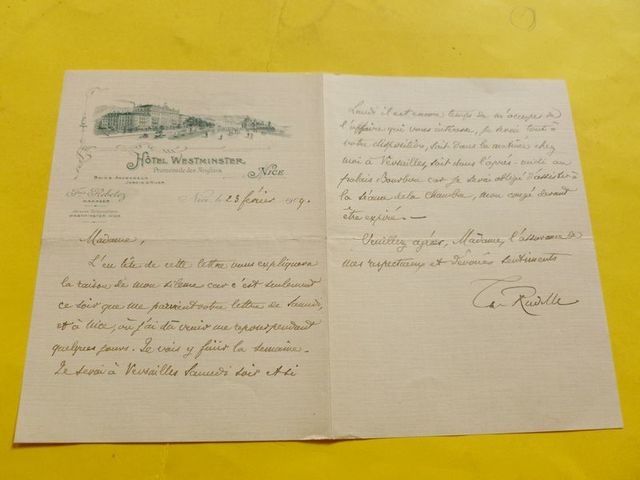 HÔTEL WESTMINSTER
Promenade des Anglais
NICE
BAINS ASCENSEUR
JARDIN D'HIVER
MANAGER
WESTMINSTER NICE
Nice, le 23 février 1909.
Madame,
L'en tête de cette lettre vous expliquera
la raison de mon silence car c'est seulement
ce soir que me parvient votre lettre de Samedi,
et à Nice, où j'ai dû venir me reposer pendant
quelques jours. Je vais y finir la semaine.
Je serai à Versailles Samedi soir et si
Lundi il est encore temps de m'occuper de
l'affaire qui vous intéresse, je serai tout à
votre disposition, soit dans la matinée chez
moi à Versailles, soit dans l'après-midi au
palais Bourbon car je serai obligé d'assister à
la séance de la Chambre, mon congé devant
être expiré. —
Veuillez agréer, Madame, l'assurance de
mes respectueux et dévoués sentiments